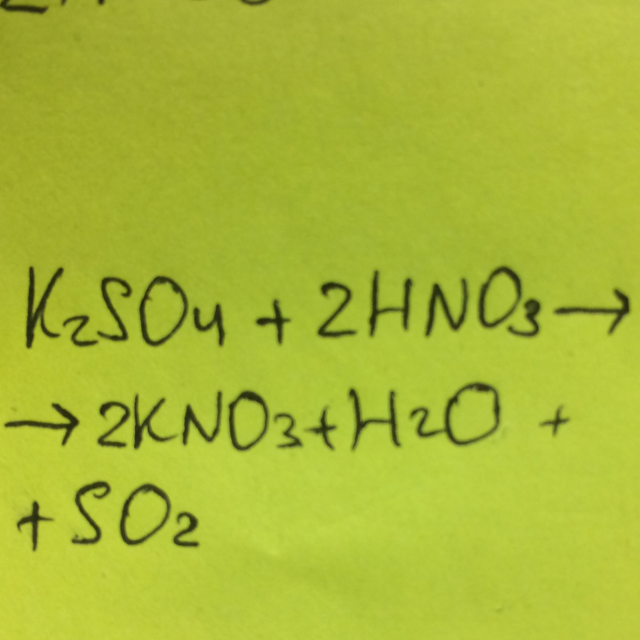 K₂SO₄ + 2HNO₃ →
→ 2KNO₃ + H₂O +
+ SO₂